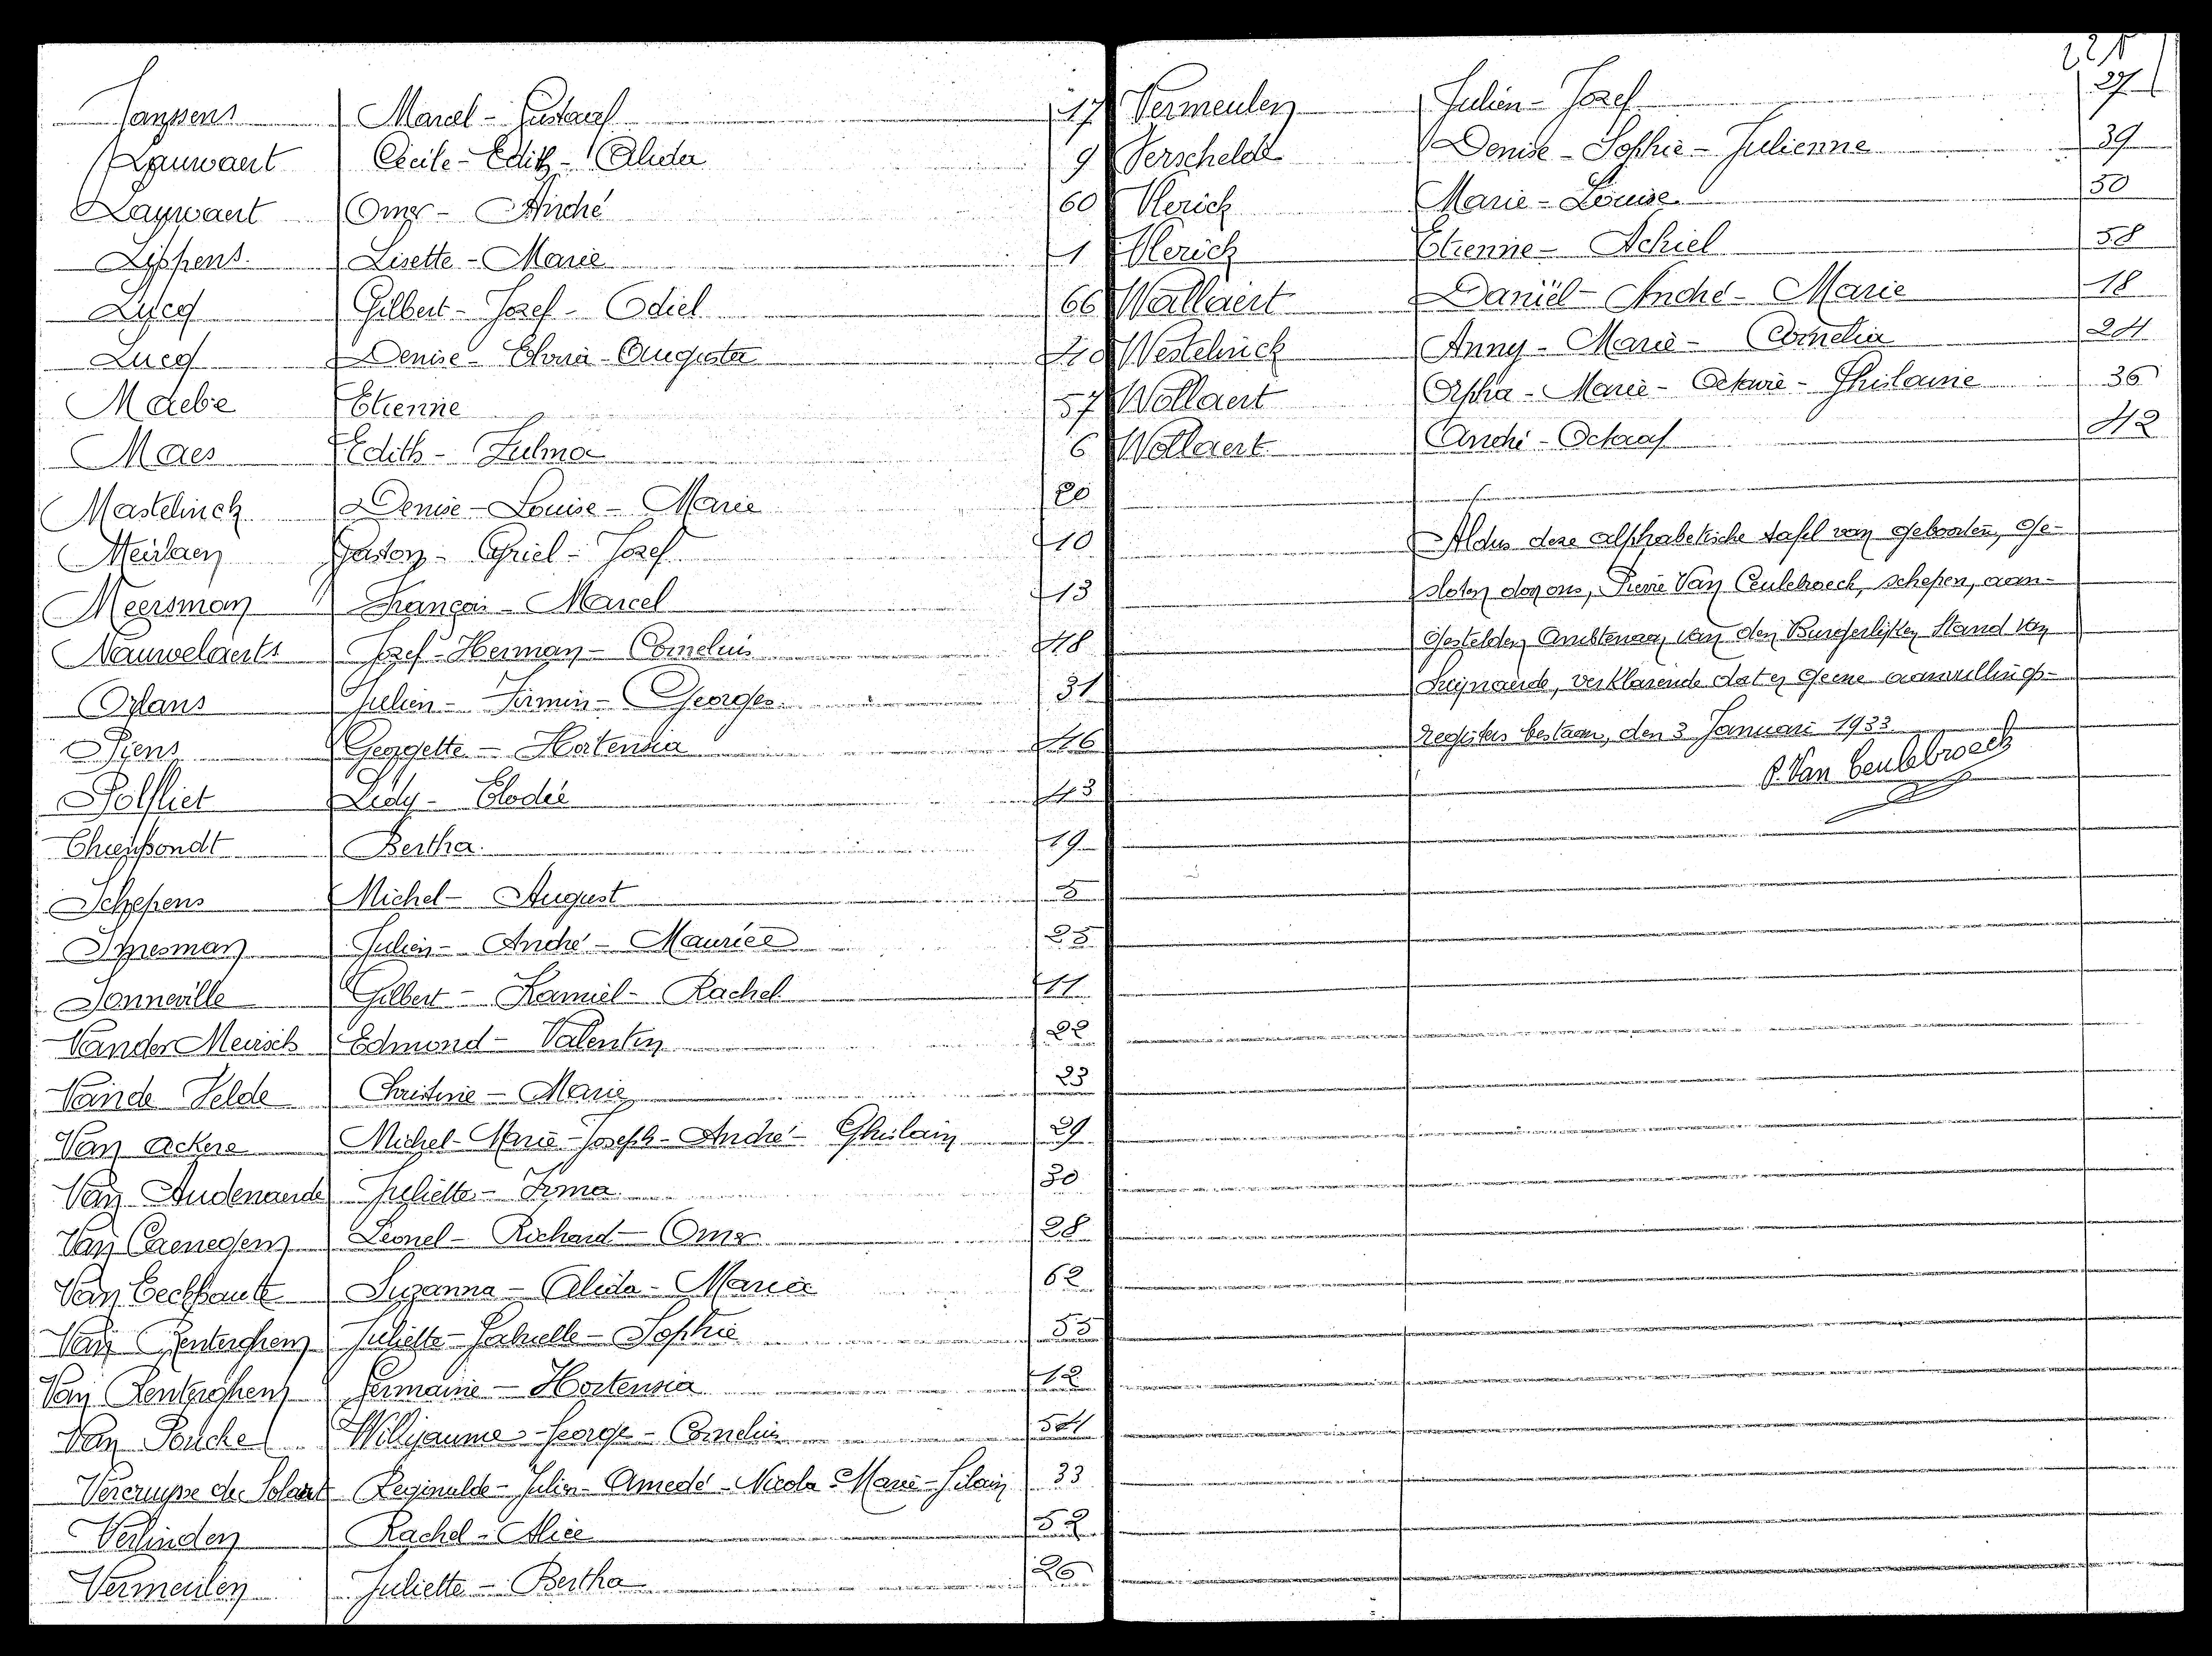 Janssens Marcel - Gustaaf 17
Lauwaert Cécile - Edith - Alida 9
Lauwaert Omer - André 60
Lippens Lisette - Marie 1
Lucq Gilbert - Jozef - Odiel 66
Lucq Denise - Elvria - Augusta 40
Maebe Etienne 57
Maes Edith - Zulma 6
Mastelinck Denise - Louise - Marie 20
Meirlaen Gaston - Cyriel - Jozef 10
Meersman François - Marcel 13
Nauwelaerts Jozef - Herman - Cornelius 48
Orlans Julien - Firmin - Georges 31
Piens Georgette - Hortensia 46
Polfliet Lidy - Elodie 43
Bertha 19
Schepens Michel - August 5
Spresman Julien - André - Maurice 25
Sonneville Gilbert - Kamiel - Rachel 11
Vander Meirsch Edmond - Valentin 22
Vande Velde Christine - Marie 23
Van Ackere Michel - Marie - Joseph - André - Ghislain 29
Van Audenaerde Juliette - Irma 30
Van Caenegem Leonel - Richard - Omer 28
Van Eeckhaute Suzanna - Alida - Maria 62
Van Renterghem Juliette - - Sophie 55
Van Renterghem Germaine - Hortensia 12
Van Poucke Willyaume - George - Cornelius 54
Vercruysse de Solart Reginalde - Julien - Amedé - Nicola - Marie - Gilain 33
Verlinden Rachel - Alice 52
Vermeulen Juliette - Bertha 26
221
Vermeulen Julien - Jozef 27
Verschelde Denise - Sophie - Julienne 39
Vlerick Marie - Louise 50
Vlerick Etienne - Achiel 58
Wallaert Daniël - André - Marie 18
Westelinck Anny - Marie - Cornelia 24
Wollaert Orpha - Marie - Octavie - Ghislaine 36
Wollaert André - Octaaf 42
Aldus deze alphabetische tafel van geboorten, ge-
sloten door ons, Pierre Van Ceulebroeck, schepen, aan-
gestelden Ambtenaar van den Burgerlijken Stand van
Seijnaerde, verklarende dat er geene aanvullings-
registers bestaan, den 3 Januari 1933
P. Van Ceulebroeck